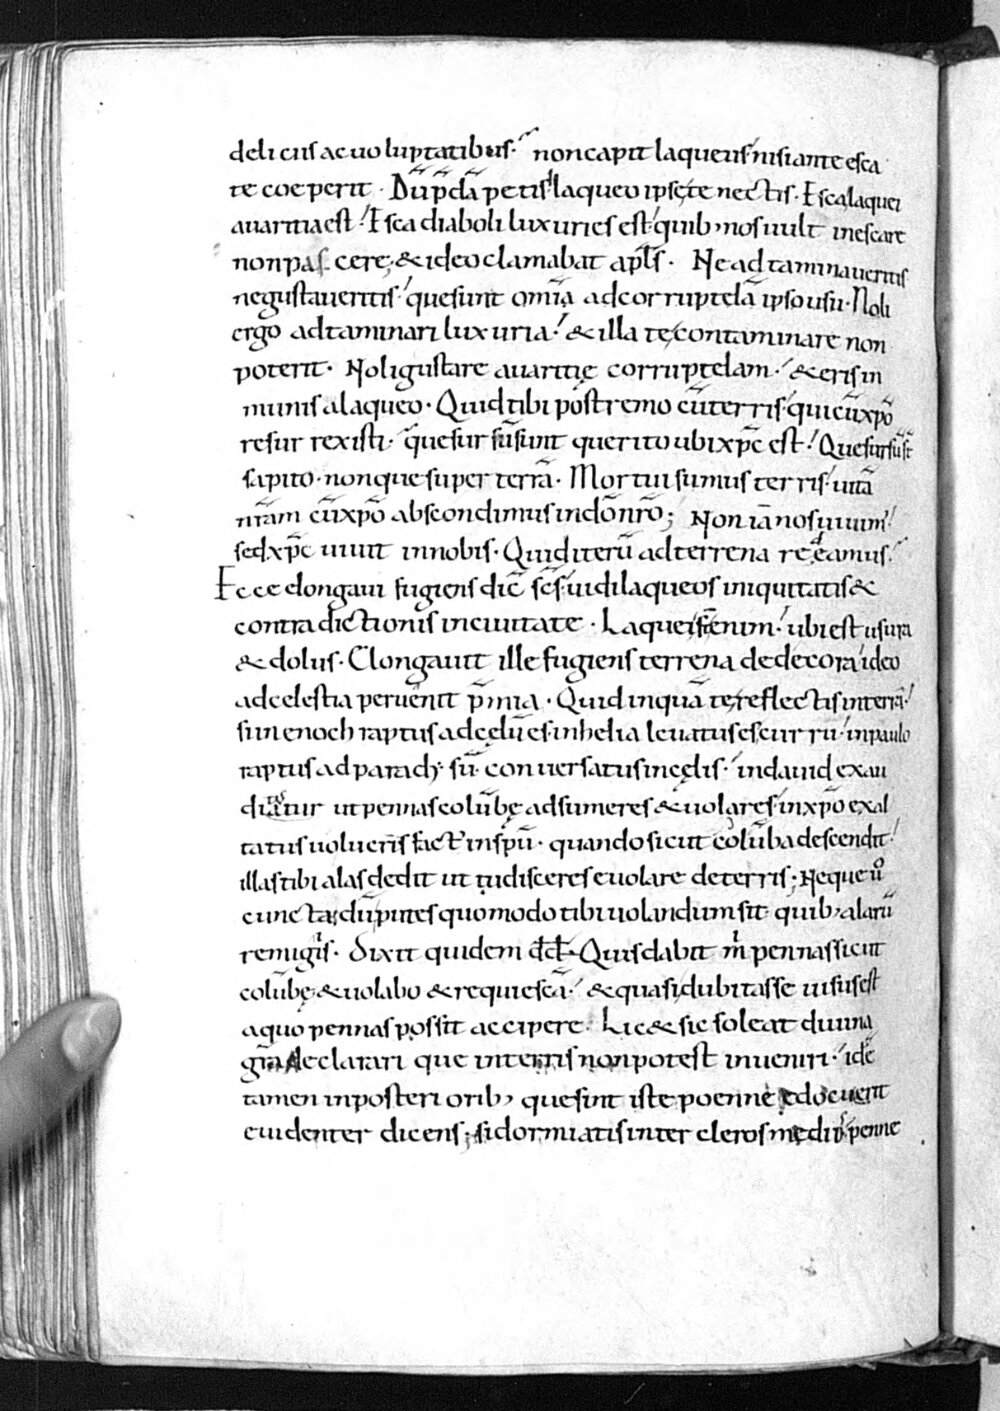 deliciis ac uoluptatibus. non capit laqueus nisi ante esca
te coeperit. Dũ p̃dã petis laqueo ipse te nectis. Esca laquei
auaritia est. Esca diaboli luxuries est quib; nos uult inescare
non pascere, & ideo clamabat apl̃s. Ne adtaminaueritis
negustaueritis. que sunt omĩa ad corruptelã ipso usu. Noli
ergo adtaminari luxuria. & illa te contaminare non
poterit. Noli gustare auaritię corruptelam. & eris in
munis a laqueo. Quid tibi postremo cũ terris qui cũ xp̃o
resurrexisti. que sursũ sunt querito ubi xp̃c est. Que sursũ st̃
sapito. non que super terrã. Mortui sumus terris. uitã
nr̃am cũ xp̃o abscondimus in dõ nr̃o; Non iã nos uiuim'
sed xp̃c uiuit in nobis. Quid iterũ ad terrena redeamus.
Ecce elongaui fugiens dic̃ sc̃s. uidi laqueos iniquitatis &
contradictionis in ciuitate. Laquei s̃ enim. ubi est usura
& dolus. Elongauit ille fugiens terrena dedecora ideo
ad celestia peruenit p̃mia. Quid inquã te reflectis in terrã.
si in enoch raptus ad cęlũ es. in helia leuatus es curru. in paulo
raptus ad parady. sũ. conuersatus in cęlis. in dauid exau
diatur ut pennas colũbę adsumeres & uolares. in xp̃o exal
tatus uolueris fact' in sp̃u. quando sicut colũba descendit.
illas tibi alas dedit ut tu disceres euolare de terris; Neque ũo
cuncta dũ putes quomodo tibi uolandum sit quib; alarũ
remigiis. Dixit quidem dd. Quis dabit m' pennas sicut
colũbę & uolabo & requiescã. & quasi dubitasse uisus est
a quo pennas possit accipere. Lic& sic soleat diuina
gr̃a declarari que in terris non potest inueniri. idẽ
tamen in posteriorib; que sint iste poenne edocuerit
euidenter dicens; si dormiatis inter cleros medios penne